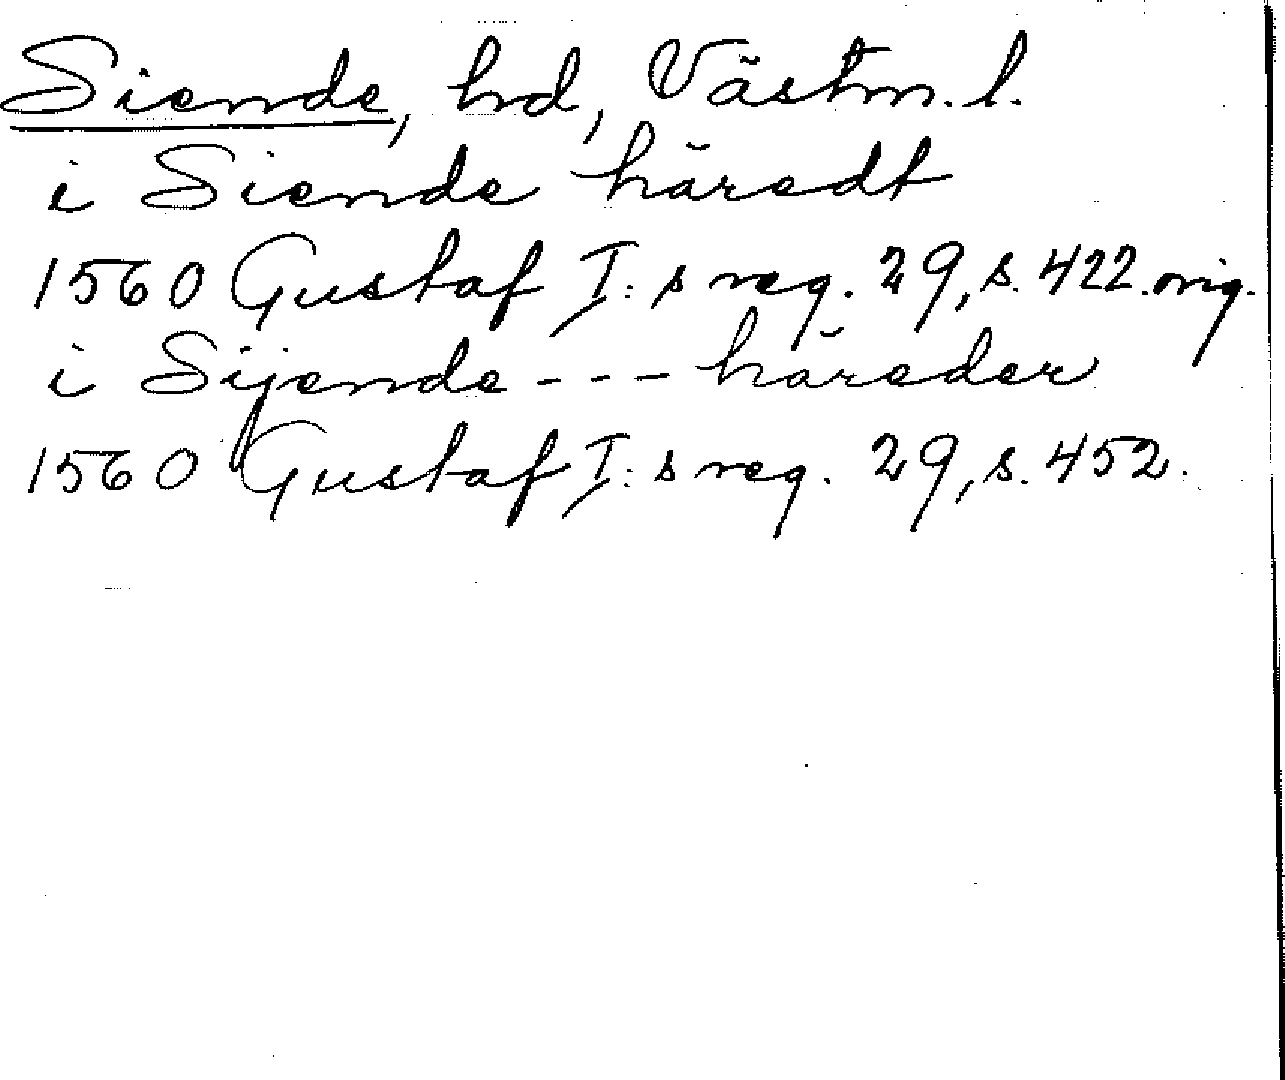 Siende, hd, Västm. l.
i Siende häredt
1560 Gustaf I:s reg. 29, s. 422. orig.
i Sijende --- häreder
1560 Gustaf I:s reg. 29, s. 452.